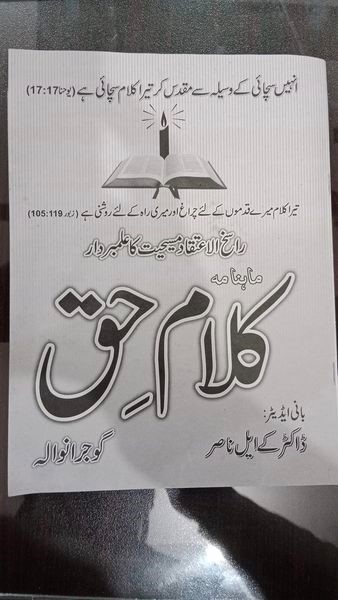 انہیں سچائی کے وسیلہ سے مقدس کر تیرا کلام سچائی ہے (یوحنا 17:17)
تیرا کلام میرے قدموں کے لئے چراغ اور میری راہ کے لئے روشنی ہے (زبور 105:119)
راسخ الاعتقاد مسیحیت کا علمبردار
ماہنامہ
کلامِ حق
بانی ایڈیٹر:
ڈاکٹر کے ایل ناصر
گوجرانوالہ